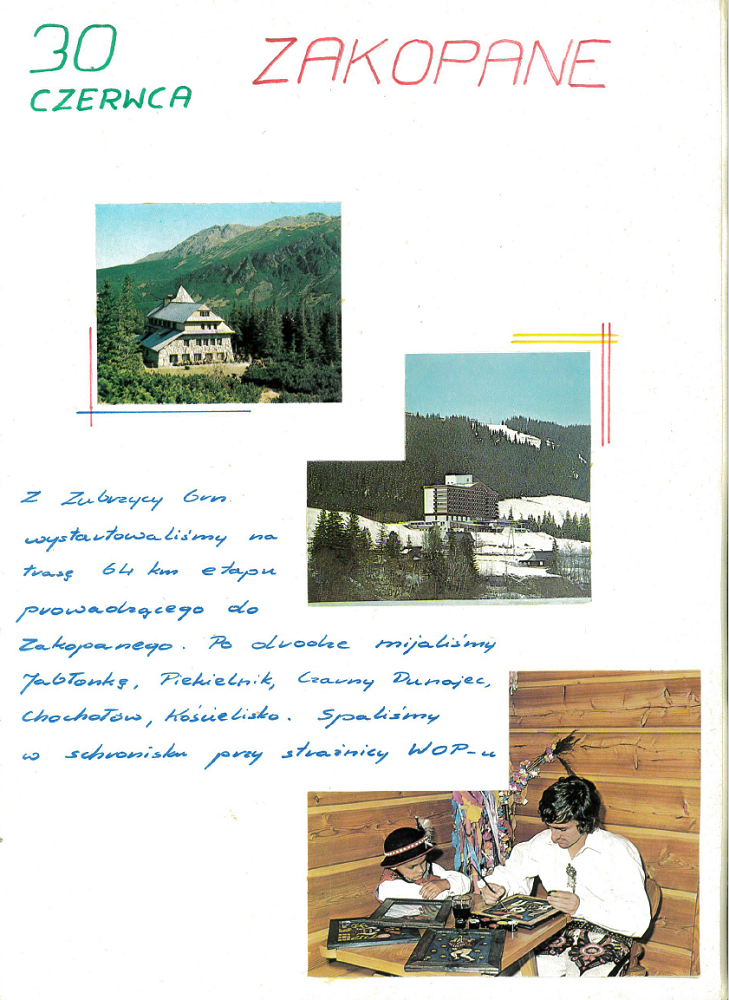 30
CZERWCA
ZAKOPANE
Z Zubrzycy Grn.
wystartowaliśmy na
trasę 64 km etapu
prowadzącego do
Zakopanego. Po drodze mijaliśmy
Jabłonkę, Piekielnik, Czarny Dunajec,
Chochołów, Kościelisko. Spaliśmy
w schronisku przy strażnicy WOP-u